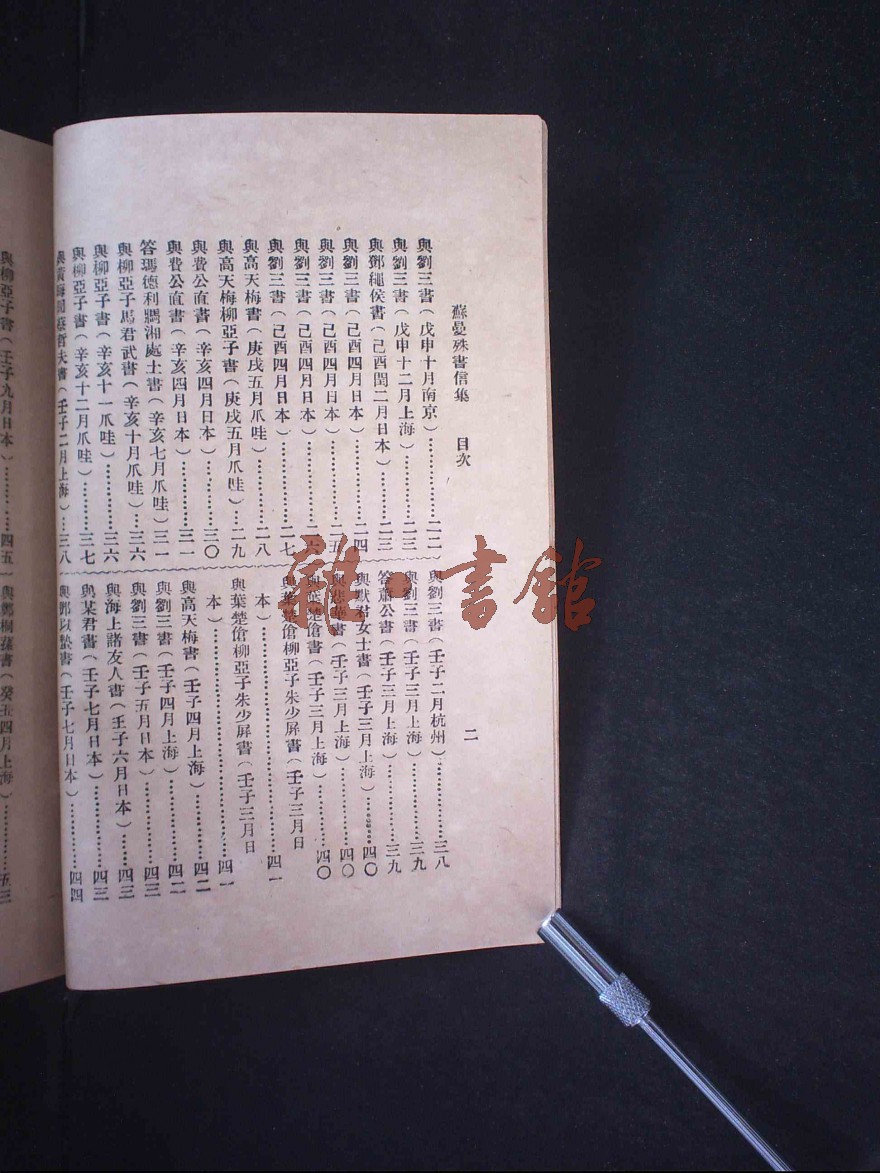 蘇曼殊書信集　目次　二
與劉三書（戊申十月南京）……二二
與劉三書（戊申十二月上海）……二三
與鄧繩侯書（己酉閏二月日本）……二三
與劉三書（己酉四月日本）……二四
與劉三書（己酉四月日本）……二五
與劉三書（己酉四月日本）……二六
與劉三書（己酉四月日本）……二七
與高天梅書（庚戌五月爪哇）……二八
與高天梅柳亞子書（庚戌五月爪哇）…二九
與費公直書（辛亥四月日本）……三〇
與費公直書（辛亥四月日本）……三一
答瑪德利瑪湘處士書（辛亥七月爪哇）三一
與柳亞子馬君武書（辛亥十月爪哇）…三六
與柳亞子書（辛亥十一爪哇）……三六
與柳亞子書（辛亥十二月爪哇）……三七
與黃晦聞蔡哲夫書（壬子二月上海）…三八
與劉三書（壬子二月杭州）……三八
與劉三書（壬子三月上海）……三九
答蕭公書（壬子三月上海）……三九
與默君女士書（壬子三月上海）……四〇
與悲華書（壬子三月上海）……四〇
與葉楚傖書（壬子三月上海）……四〇
與葉楚傖柳亞子朱少屏書（壬子三月日
本）……四一
與葉楚傖柳亞子朱少屏書（壬子三月日
本）……四一
與高天梅書（壬子四月上海）……四二
與劉三書（壬子四月上海）……四二
與劉三書（壬子五月日本）……四三
與海上諸友人書（壬子六月日本）……四三
與某君書（壬子七月日本）……四三
與鄧以蟄書（壬子七月日本）……四四
與柳亞子書（壬子九月日本）……四五
與鄭桐蓀書（癸丑四月上海）……五三
雜·書館